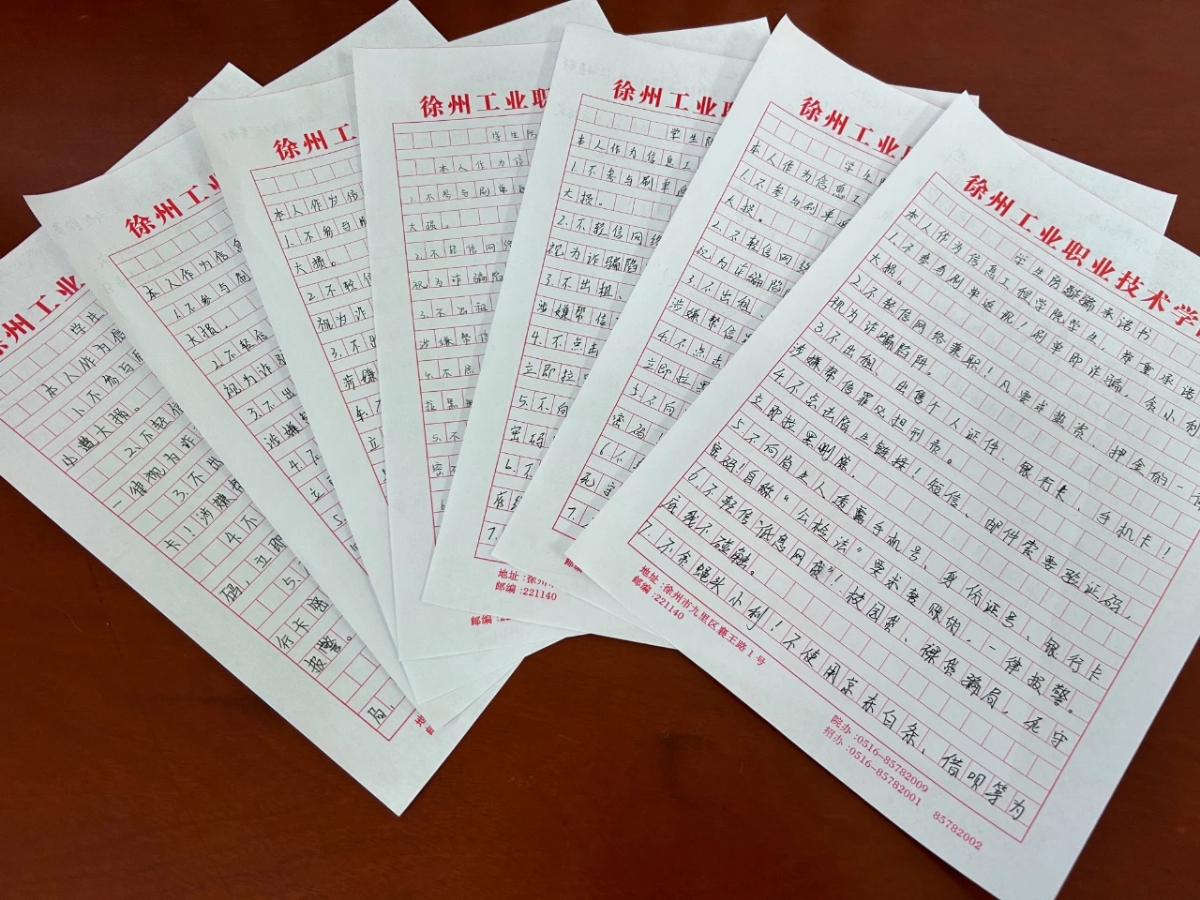 徐州工业
学生
本人作为信
1.不参与
小费大损。
2.不轻信
一律视为诈
3.不出
卡！涉嫌
4.不
码，立即
5.
行卡
报警。
局，
徐州工业
本人作为信息
1.不参与刷
大损。
2.不轻信
视为诈
3.不出
涉嫌
4.不
立
5.
徐州工
本人作为信
1.不参与
大损。
2.不轻信
视为诈
3.不出
涉嫌
4.不
立
徐州工业职
学生防
本人作为信
1.不参与刷单
大损。
2.不轻信网络
视为诈骗陷
3.不出租
涉嫌帮信
4.不点
拉黑
5.不
密
邮编:221140
徐州工业职
学生防
本人作为信息工
1.不参与刷单返
大损。
2.不轻信网络
视为诈骗陷
3.不出租、
涉嫌帮信
4.不点击
立即拉
5.不向
密码
6.不
底
7.
地址:徐州
邮编:221140
徐州工业职
学生
本人作为信息工
1.不参与刷单返
大损。
2.不轻信网络
视为诈骗陷
3.不出租、
涉嫌帮信
4.不点击
立即拉黑
5.不向
密码
6.不
死守
7.
徐州工业职业技术学
学生防诈骗承诺书
本人作为信息工程学院学生，郑重承诺
1.不参与刷单返现！刷单即诈骗，贪小利
大损。
2.不轻信网络兼职！凡要求垫资、押金的一
视为诈骗陷阱。
3.不出租、出售个人证件、银行卡、手机卡！
涉嫌帮信罪处担刑责。
4.不点击陌生链接！短信、邮件索要验证码，
立即拉黑删除。
5.不向陌生人透露手机号、身份证号、银行卡
密码！自称“公检法”要求转账的，一律报警。
6.不轻信“低息网贷”！校园贷、裸贷骗局，死守
底线不碰触。
7.不贪蝇头小利！不使用京东白条、借呗等为
地址:徐州市九里区襄王路1号
邮编:221140
院办:0516-85782009
招办:0516-85782001 85782002